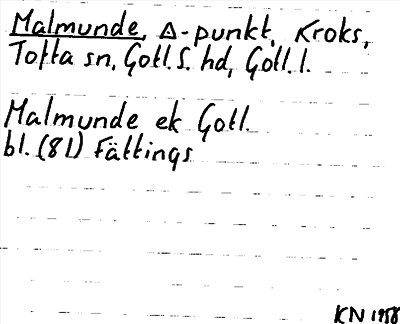 Malmunde, Δ-punkt, Kroks,
Tofta sn, Gotl. S. hd, Gotl. l.
Malmunde ek Gotl.
bl. (81) Fättings
KN 1958